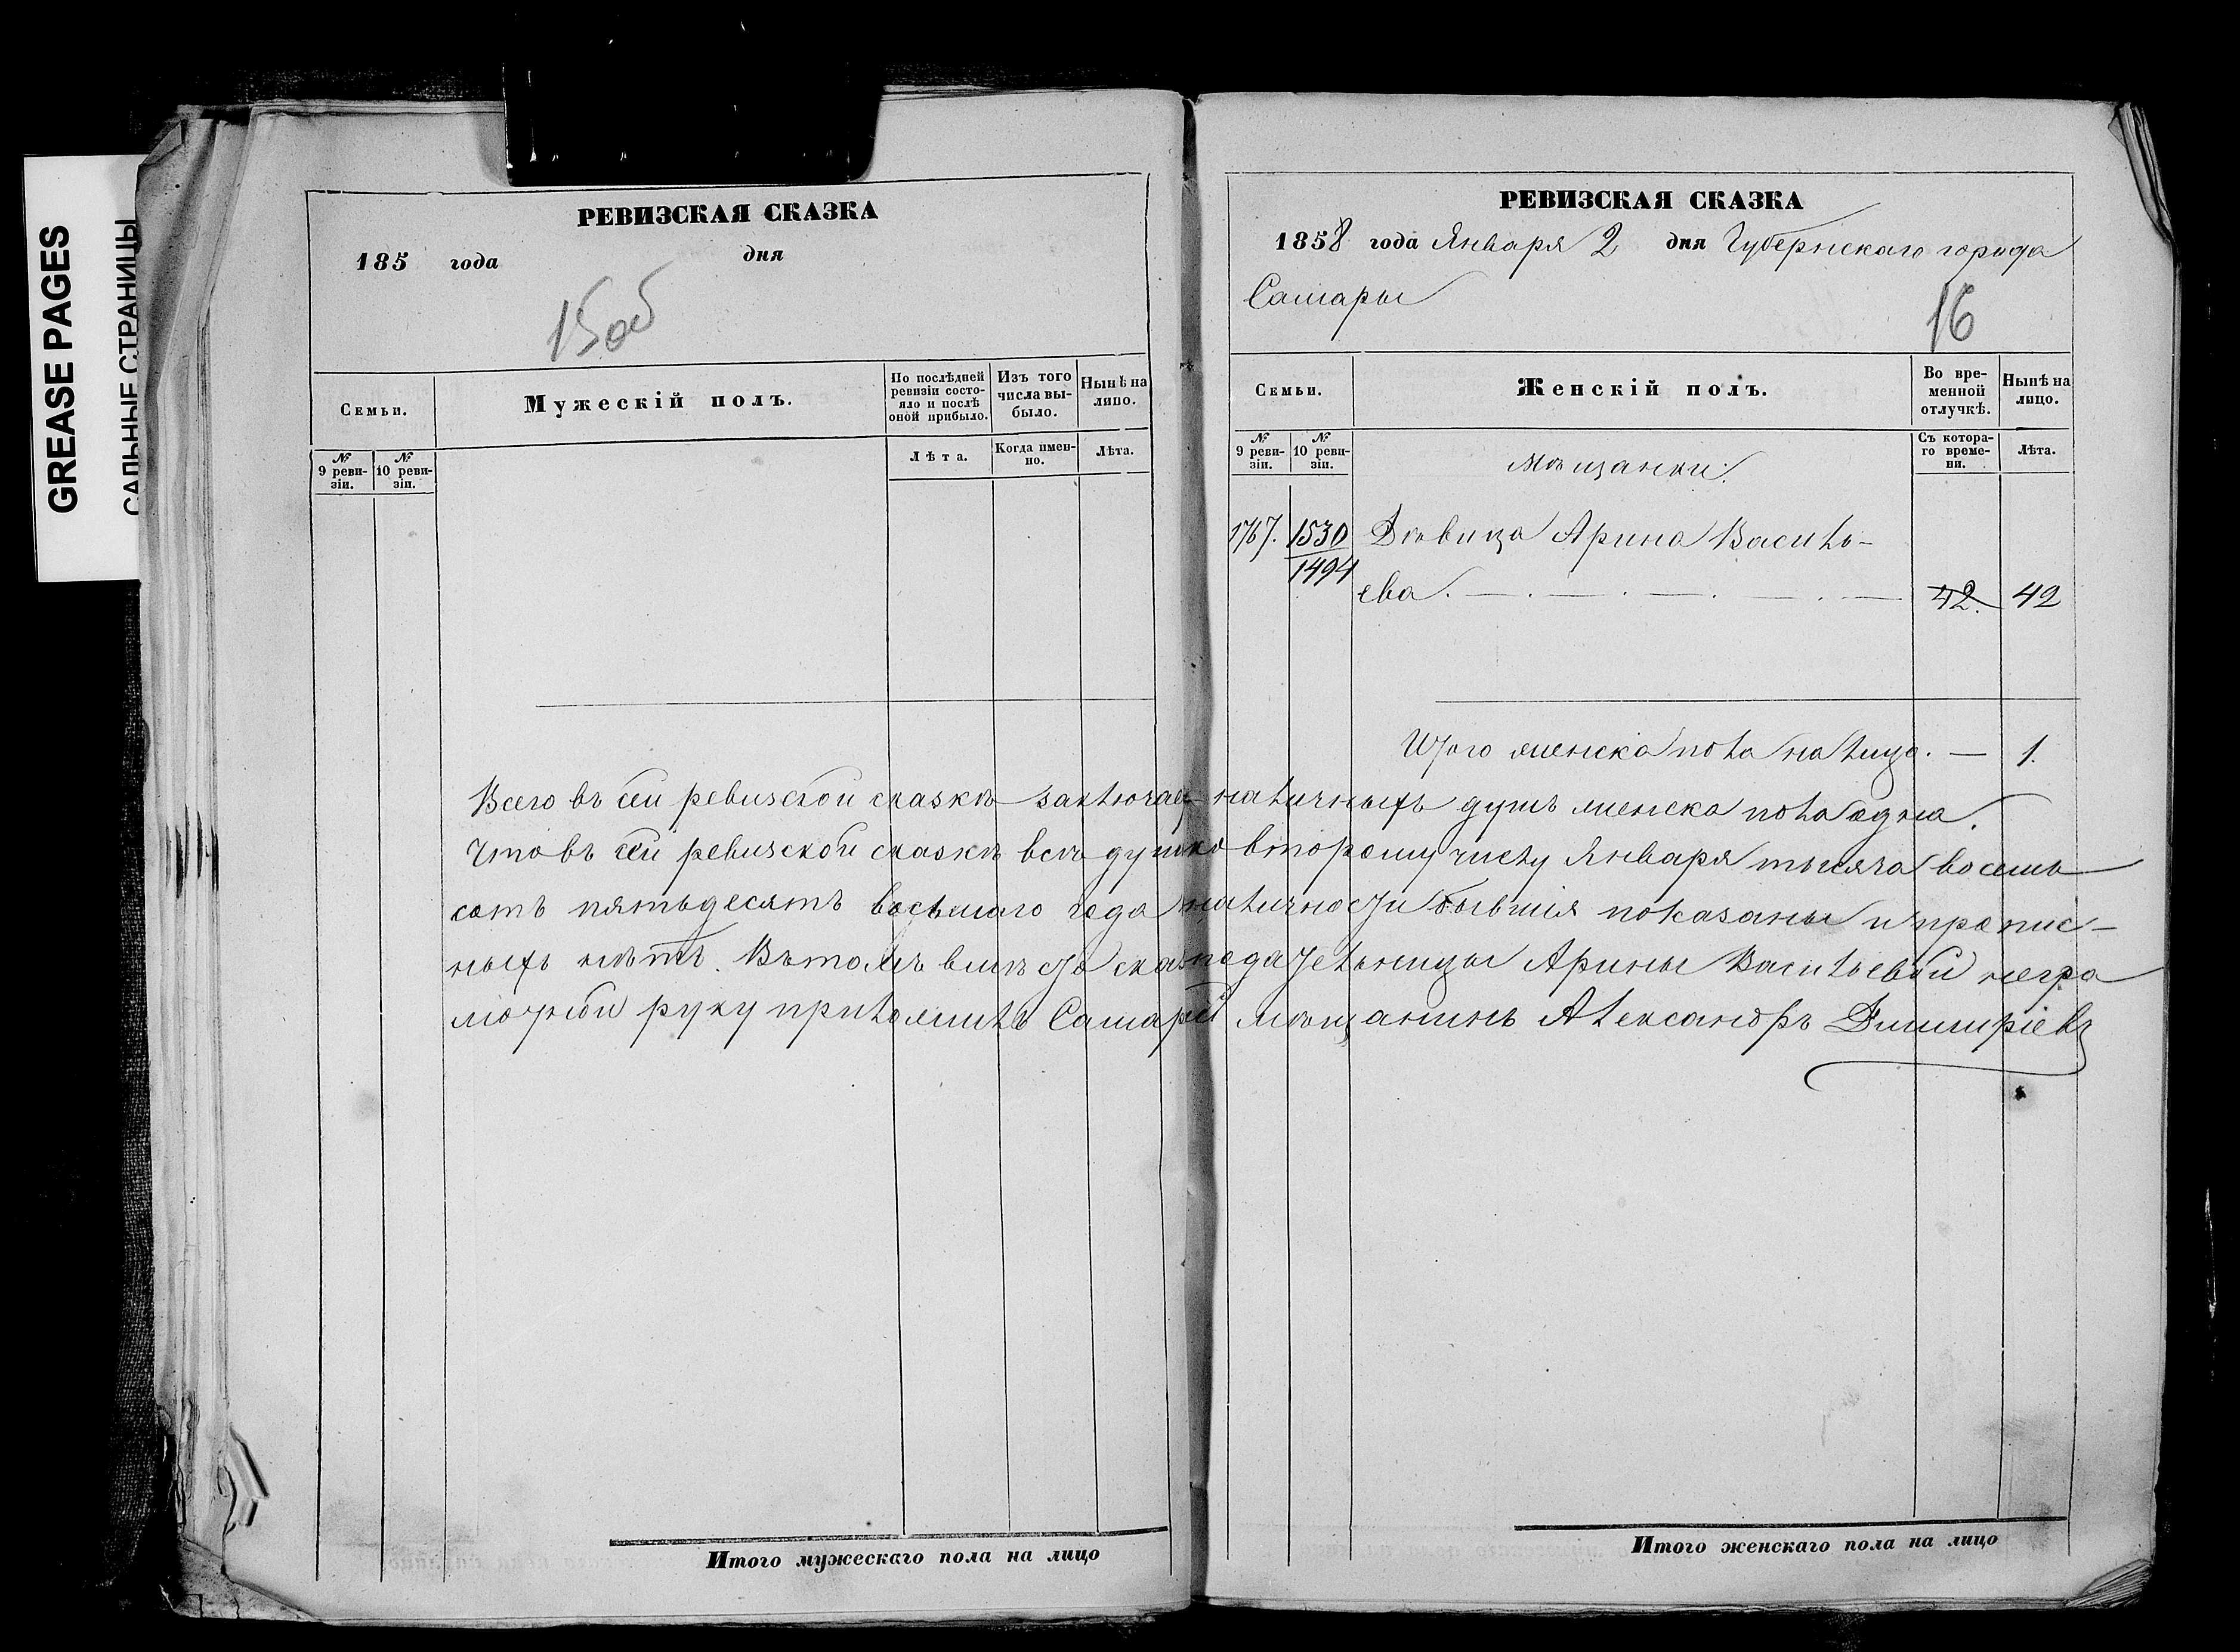 GREASE PAGES
САЛЬНЫЕ СТРАНИЦЫ
РЕВИЗСКАЯ СКАЗКА
185 года дня
15об
Семьи.
Мужескій полъ.
По послѣдней ревизіи состояло и послѣ оной прибыло.
Изъ того числа выбыло.
Нынѣ на лицо.
№ 9 ревизіи.
№ 10 ревизіи.
Лѣта.
Когда именно.
Лѣта.
РЕВИЗСКАЯ СКАЗКА
1858 года Января 2 дня Губернскаго города
Самары
16
Семьи.
Женскій полъ.
Во временной отлучкѣ.
Нынѣ на лицо.
№ 9 ревизіи.
№ 10 ревизіи.
Съ котораго времени.
Лѣта.
Мѣщанки.
1767. 1530 Дѣвица Арина Василь-
1494
ева. 42. 42
Итого женска пола на лицо. — 1.
Всего въ сей ревизской сказкѣ заключает наличныхъ душъ женска пола одна.
Что въ сей ревизской сказкѣ всѣ души ко второму числу Января тысяча восемь
сотъ пятьдесятъ восьмаго года наличности бывшія показаны и пропис-
ныхъ нѣтъ. Въ томъ вмѣсто сказкоподательницы Арины Васильевой негра
мотной руку приложилъ Самарій мѣщанинъ Александръ Дмитріевъ
Итого мужескаго пола на лицо
Итого женскаго пола на лицо